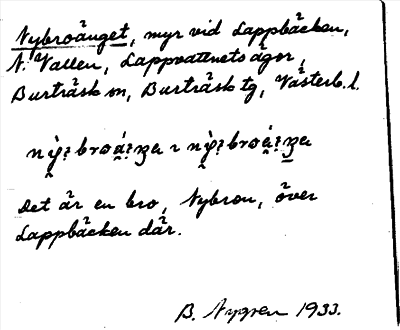 Nybroänget, myr vid Lappbäcken,
N. Vallen, Lappvattnets ägor,
Burträsk sn, Burträsk tg, Västerb. l.
Det är en bro, Nybron, över
Lappbäcken där.
B. Nygren 1933.